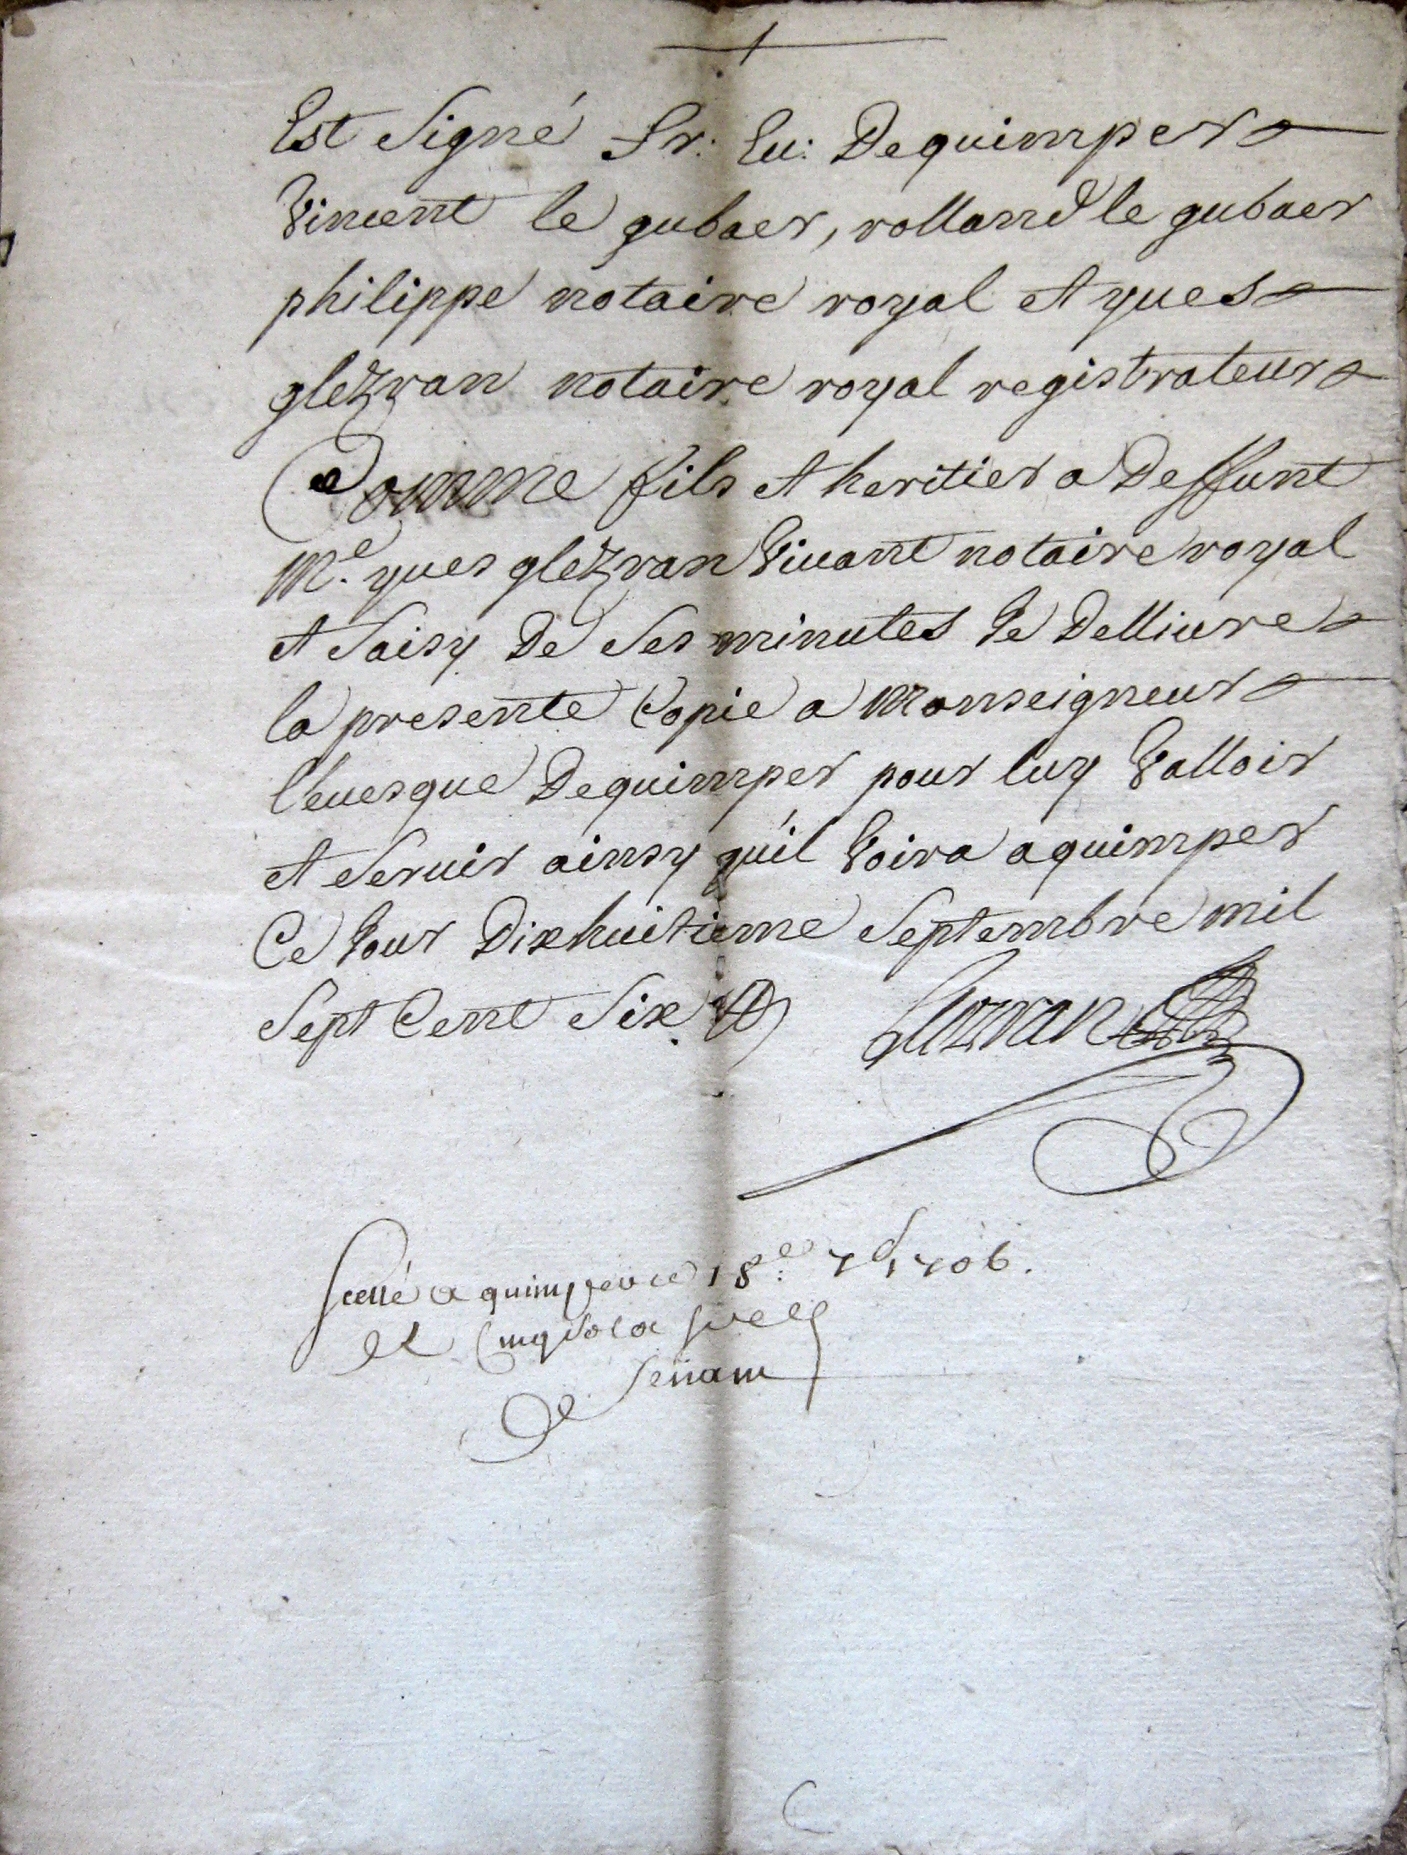 Est Signé fr: Eu: De quimper
Vincent le gubaer, rolland le gubaer
philippe notaire royal et yues
glezran notaire royal registrateur
Comme fils et heritier a Deffunt
Me. yues glezran Viuant notaire royal
et saisy De ses minutes Je Delliure
la presente Copie a Monseigneur
l'euesque De quimper pour luy Valloir
et seruir ainsy qu'il Voira a quimper
Ce Jour Dixhuitieme Septembre mil
Sept Cent Six
Glezran
Scellé a quimper ce 18e: 7b 1706.
et
De